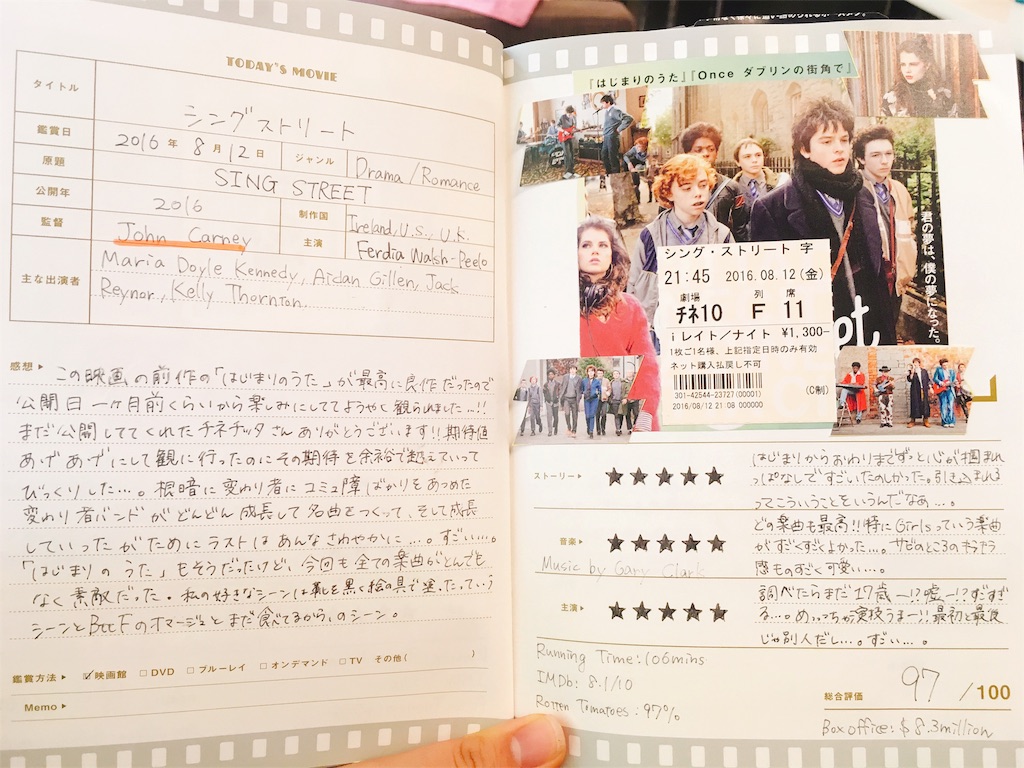 TODAY'S MOVIE
タイトル
シングストリート
鑑賞日
2016 年 8 月 12 日
ジャンル
Drama/Romance
原題
SING STREET
公開年
2016
制作国
Ireland, U.S., U.K.
監督
John Carney
主演
Ferdia Walsh-Peelo
主な出演者
Maria Doyle Kennedy, Aidan Gillen, Jack
Reynor, Kelly Thornton
感想
この映画の前作の「はじまりのうた」が最高に良作だったので
公開日一ヶ月前くらいから楽しみにしててようやく観られました…!!
まだ公開しててくれたチネチッタさんありがとうございます!!期待値
あげあげにして観に行ったのにその期待を余裕で越えていって
びっくりした…。根暗に変わり者にコミュ障ばかりをあつめた
変わり者バンドがどんどん成長して名曲をつくって、そして成長
していったがためにラストはあんなさわやかに…。すごい…。
「はじまりのうた」もそうだったけど、今回も全ての楽曲がとんでも
なく素敵だった。私の好きなシーンは靴を黒く絵の具で塗ったっていう
シーンとBTTFのオマージュとまだ食べてるから、のシーン。
鑑賞方法
映画館 DVD ブルーレイ オンデマンド TV その他( )
Memo
『はじまりのうた』『Once ダブリンの街角で』
君の夢は、僕の夢になった。
シング・ストリート 字
21:45 2016.08.12(金)
劇場 列 席
ﾁﾈ10 F 11
iレイト/ナイト ¥1,300-
1枚ご1名様、上記指定日時のみ有効
ネット購入払戻し不可
(C制)
301-42544-23727(0001)
2016/08/12 21:08 000000
ストーリー ★★★★★
はじまりからおわりまでずっと心が掴まれ
っぱなしですごいたのしかった。引き込まれる
ってこういうことをいうんだなぁ…。
音楽 ★★★★★
Music by Gary Clark
どの楽曲も最高!!特にGirlsっていう楽曲
がすごくすごくよかった…。サビのところのキラキラ
感ものすごく可愛い…。
主演 ★★★★★
調べたらまだ17歳〜!?嘘〜!?すごすぎ
る…。めっちゃ演技うまー!!最初と最後
じゃ別人だし…。すごい…。
Running Time: 106mins
IMDb: 8.1/10
Rotten Tomatoes: 97%
総合評価 97 /100
Box office: $8.3million